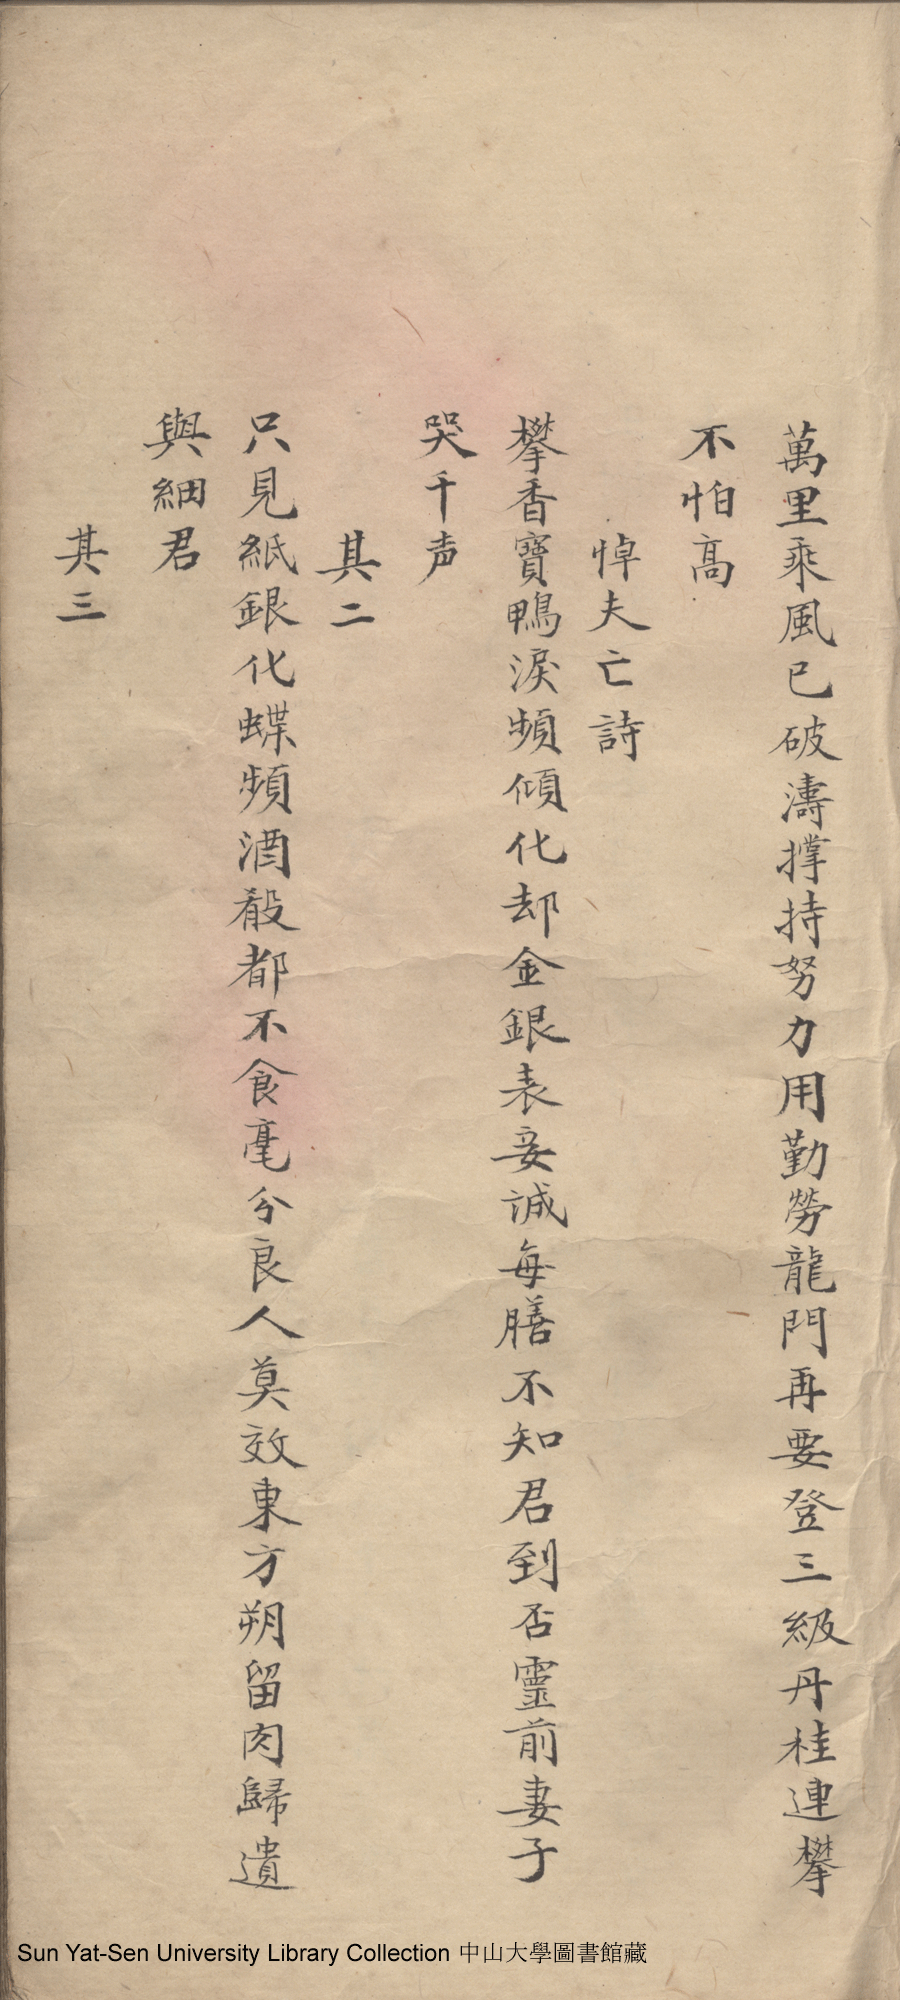 萬里乘風已破濤撑持努力用勤勞龍門再要登三級丹桂連攀
不怕高
悼夫亡詩
攀香寶鴨淚頻傾化却金銀表妾誠每膳不知君到否靈前妻子
哭千声
其二
只見紙銀化蝶頻酒殽都不食毫分良人莫效東方朔留肉歸遺
與細君
其三
Sun Yat-Sen University Library Collection 中山大學圖書館藏